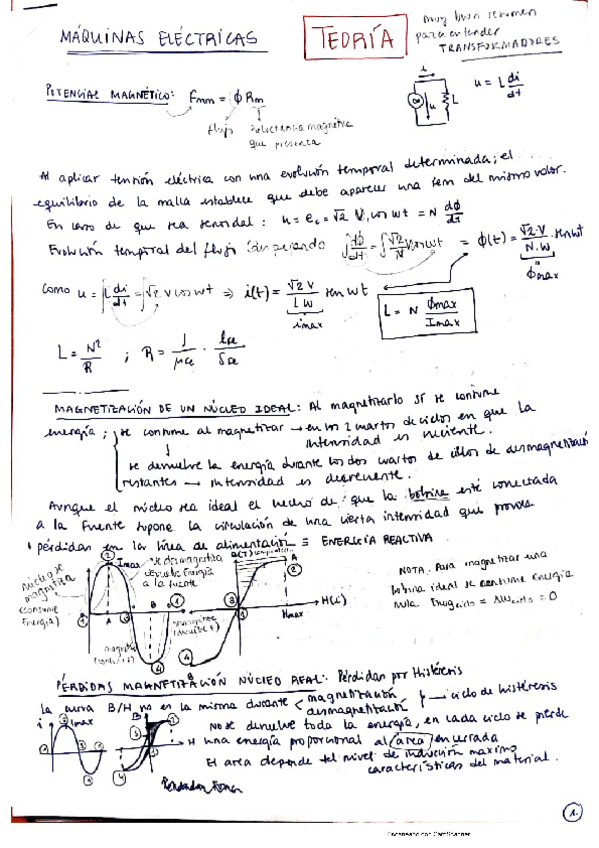 MÁQUINAS ELÉCTRICAS
TEORÍA
muy buen resumen
para entender
TRANSFORMADORES
POTENCIAL MAGNÉTICO: Fmm = ϕ Rm
flujo Reluctancia magnética
que presenta
i
u
L
u = L di/dt
Al aplicar tensión eléctrica con una evolución temporal determinada; el
equilibrio de la malla establece que debe aparecer una fem del mismo valor.
En caso de que sea senoidal: u = e = √2 V cos wt = N dϕ/dt
Evolución temporal del flujo despejando ∫ dϕ/dt = ∫ √2/N V cos wt = ϕ(t) = √2·V/N·W · sen wt
ϕmax
como u = ∫ L di/dt = ∫ √2 V cos wt ⇒ i(t) = √2 V/L W sen wt
imax
L = N ϕmax/Imax
L = N²/R ; R = 1/μ · l/S
MAGNETIZACIÓN DE UN NÚCLEO IDEAL: Al magnetizarlo sí se consume
energía; se consume al magnetizar → en los 2 cuartos de ciclos en que la
intensidad es creciente.
se devuelve la energía durante los dos cuartos de ciclos de desmagnetización
restantes → intensidad es decreciente.
Aunque el núcleo sea ideal el hecho de que la bobina esté conectada
a la fuente supone la circulación de una cierta intensidad que provoca
pérdidas en la línea de alimentación ≡ ENERGÍA REACTIVA
núcleo se
magnetiza
(consume
Energía)
Imax
se desmagnetiza
devuelve Energía
a la fuente
A
B
1
2
3
4
H(i)
Hmax
NOTA. Para magnetizar una
bobina ideal se consume energía
nula
PÉRDIDAS MAGNETIZACIÓN NÚCLEO REAL: Pérdidas por Histéresis
La curva B/H no es la misma durante magnetización
desmagnetización
ciclo de histéresis
No se devuelve toda la energía, en cada ciclo se pierde
una energía proporcional al área encerrada
El area depende del nivel de inducción maximo
características del material.
i
Imax
B
H
1.
Escaneado con CamScanner